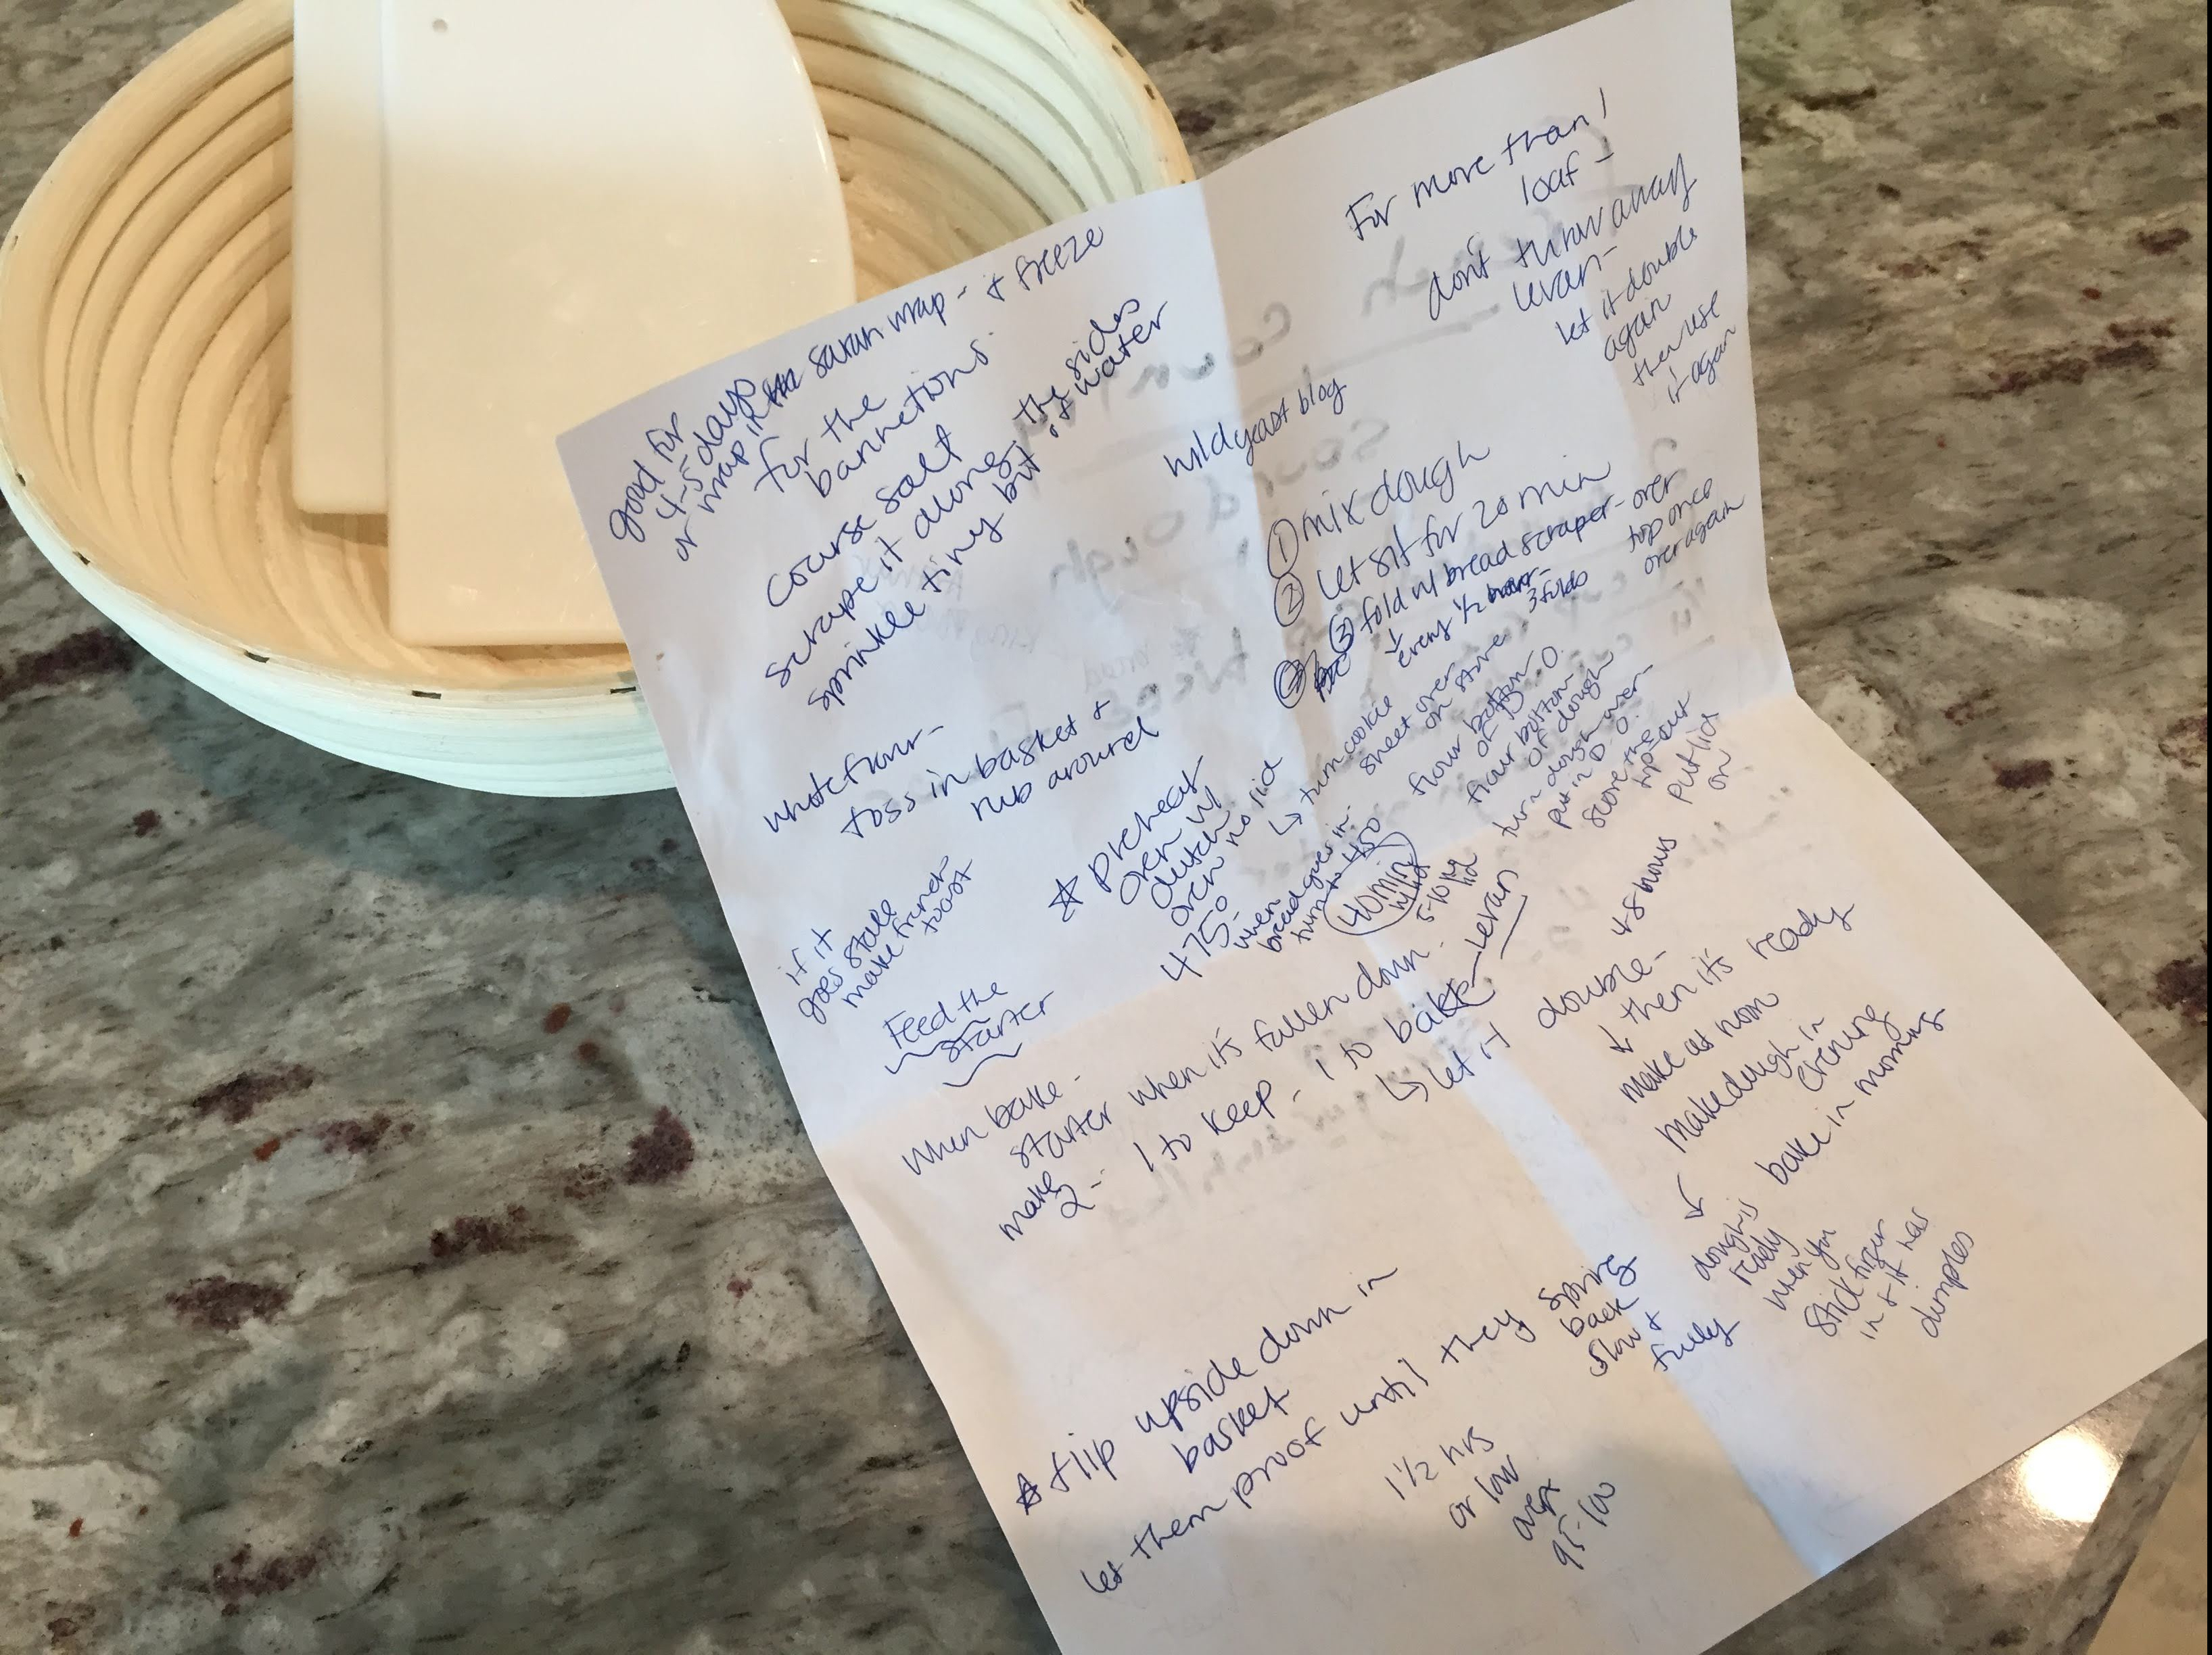 good for
4-5 days
or wrap in saran wrap - + freeze
for the
bannetions.
coarse salt
scrape it along the sides
sprinkle tiny bit of water
white flour -
toss in basket +
rub around
if it
goes stale
make french
toast
For more than 1
loaf -
don't throw away
levan -
let it double
again
then use
it again
wildyeast blog
① mix dough
② Let sit for 20 min
③ fold w/ bread scraper - over
top once
over again
↓
every 1/2 hour -
3 folds
☆ Preheat
oven w/
dutch
oven no lid
475°
↳ turn cookie
sheet over
on stove
when
bread goes in
turn to 450
40 min
w/ lid
5-10 no
lid
flour bottom
of D.O.
flour bottom
of dough
turn dough over -
put in D.O.
score the
top - out
put lid
on
Feed the
starter
When bake -
starter when it's fallen down.
make
2 - 1 to keep - 1 to bake - levan
↳ let it double -
4-8 hours
↓ then it's ready
make at noon
make dough in
evening
bake in morning
↓
dough is
ready
when you
stick finger
in + it has
dimples
☆ flip upside down in
basket
let them proof until they spring
back
slow +
fully
1 1/2 hrs
or low
oven
95-100